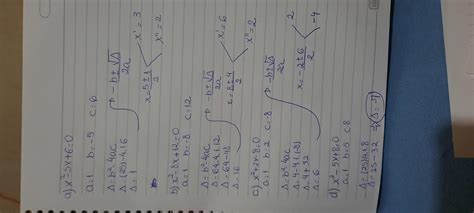 a) x²-5x+6=0
a=1 b=-5 c=6
Δ=b²-4ac
Δ=(25)-4.1.6
Δ=1
-b±√Δ
2a
x=5±1
2
x'=3
x''=2
b) x²-8x+12=0
a=1 b=-8 c=12
Δ=b²-4ac
Δ=64-4.1.12
Δ=64-48
Δ=16
-b±√Δ
2a
x=8±4
2
x'=6
x''=2
c) x²+2x-8=0
a=1 b=2 c=-8
Δ=b²-4ac
Δ=4-4.1.(-8)
Δ=4+32
Δ=6
-b±√Δ
2a
x=-2±6
2
2
-4
d) x²-5x+8=0
a=1 b=5 c8
Δ=b²-4ac
Δ=25-32
Δ=-7